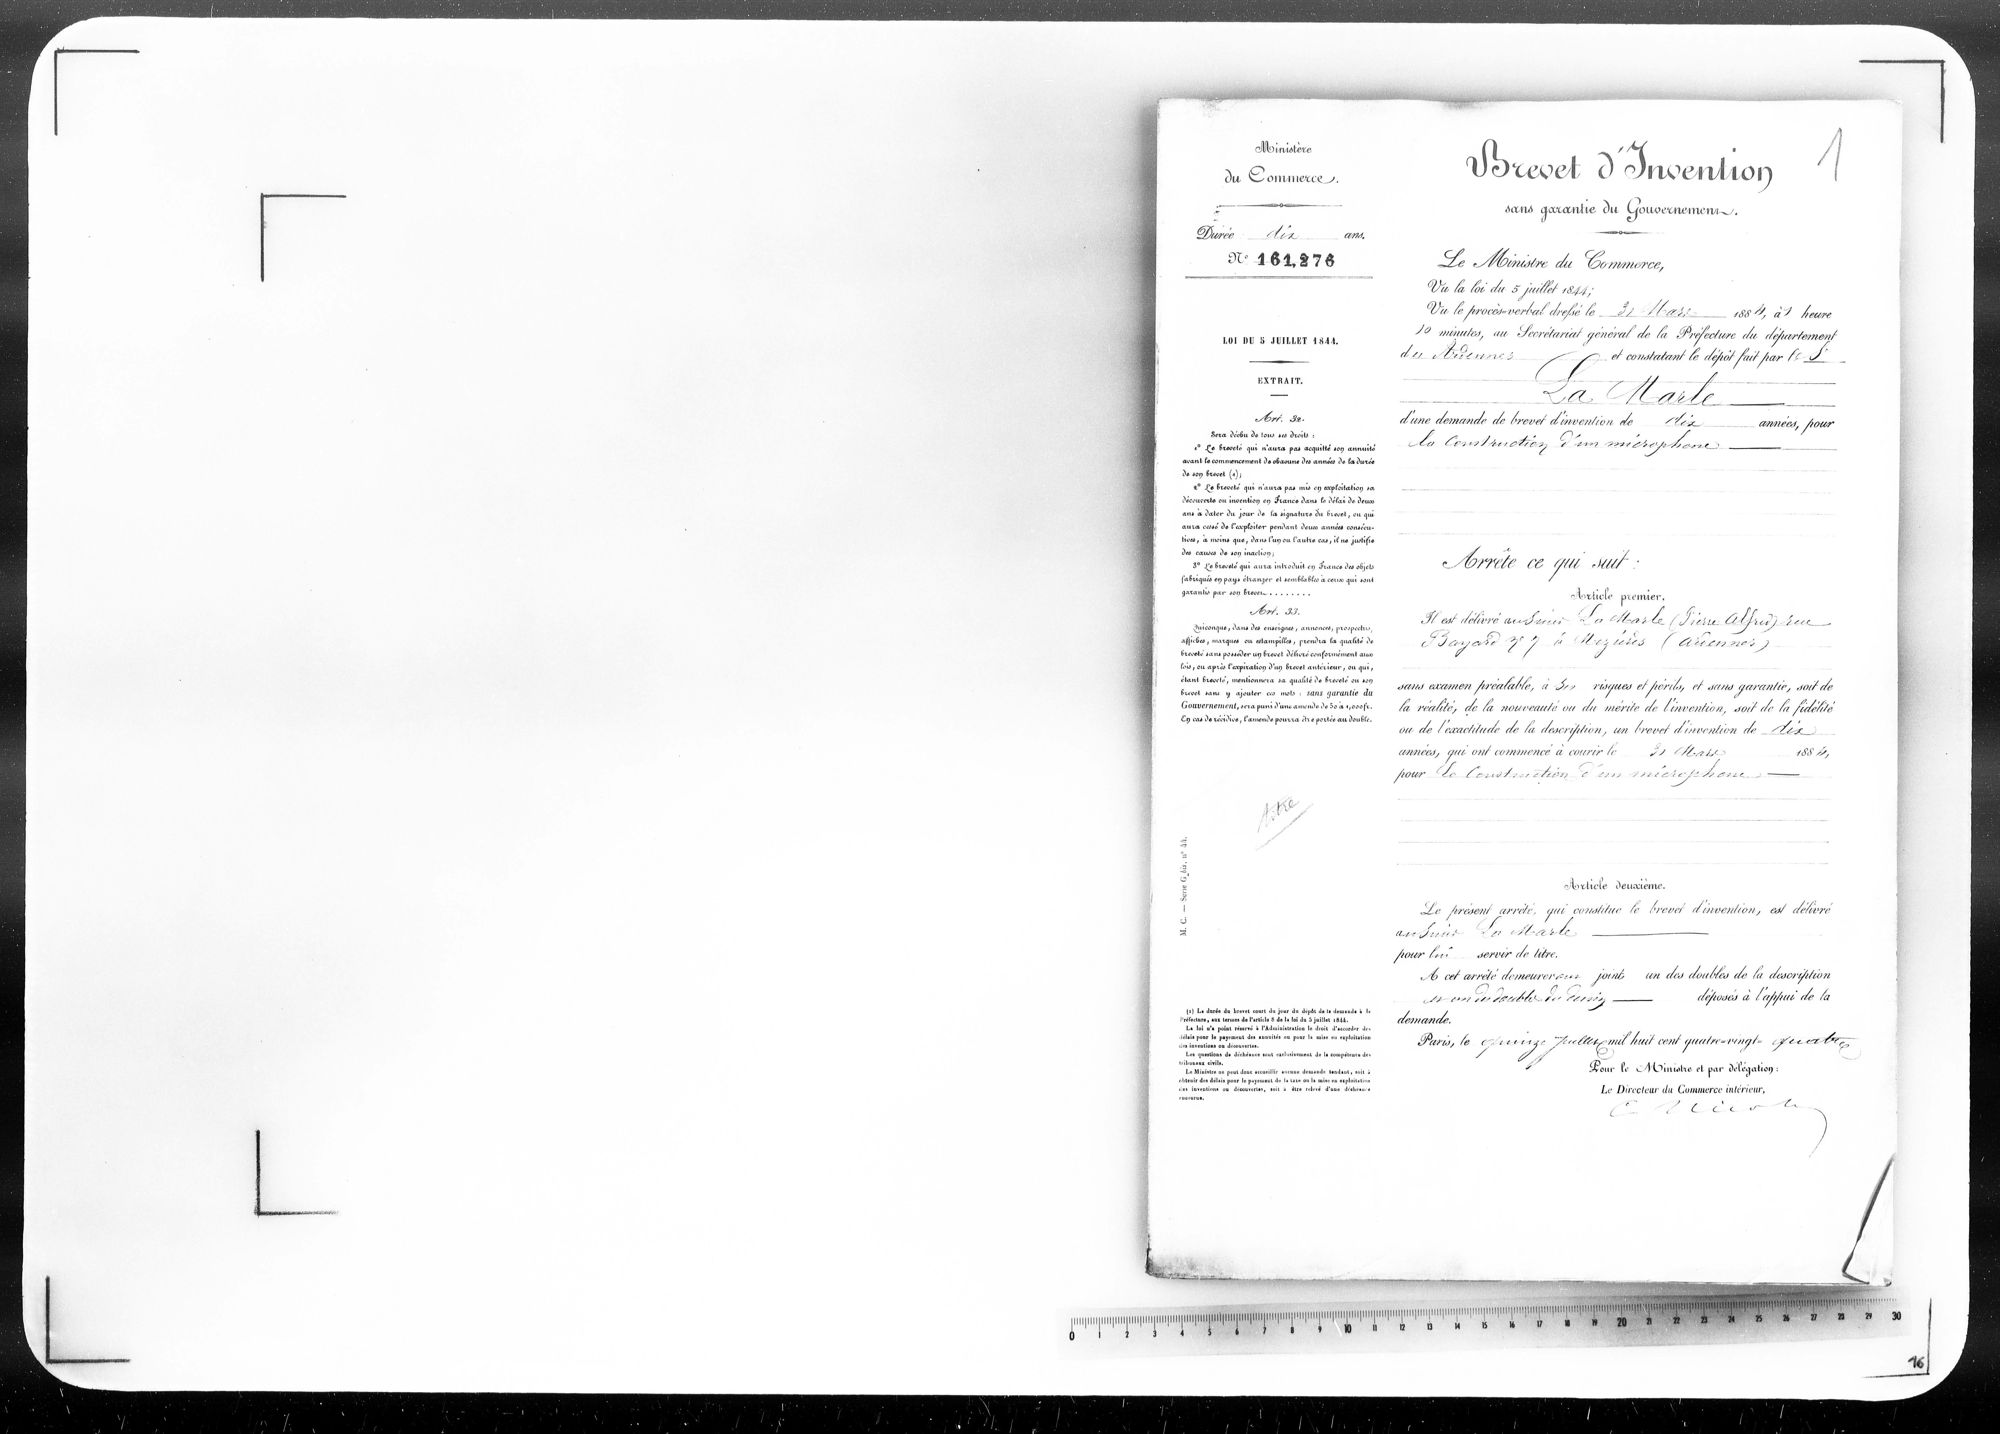 Ministère
du Commerce.
Durée dix ans.
N° 161,276
LOI DU 5 JUILLET 1844.
EXTRAIT.
Art. 32.
Sera déchu de tous ses droits :
1° Le breveté qui n'aura pas acquitté son annuité
avant le commencement de chacune des années de la durée
de son brevet (1);
2° Le breveté qui n'aura pas mis en exploitation sa
découverte ou invention en France dans le délai de deux
ans à dater du jour de la signature du brevet, ou qui
aura cessé de l'exploiter pendant deux années consécu-
tives, à moins que, dans l'un ou l'autre cas, il ne justifie
des causes de son inaction;
3° Le breveté qui aura introduit en France des objets
fabriqués en pays étranger et semblables à ceux qui sont
garantis par son brevet.........
Art. 33.
Quiconque, dans des enseignes, annonces, prospectus,
affiches, marques ou estampilles, prendra la qualité de
breveté sans posséder un brevet délivré conformément aux
lois, ou après l'expiration d'un brevet antérieur, ou qui,
étant breveté, mentionnera sa qualité de breveté ou son
brevet sans y ajouter ces mots : sans garantie du
Gouvernement, sera puni d'une amende de 50 à 1,000 fr.
En cas de récidive, l'amende pourra être portée au double.
M. C. — Série G bis, n° 44.
(1) La durée du brevet court du jour du dépôt de la demande à la
Préfecture, aux termes de l'article 8 de la loi du 5 juillet 1844.
La loi n'a point réservé à l'Administration le droit d'accorder des
délais pour le payement des annuités ou pour la mise en exploitation
des inventions ou découvertes.
Les questions de déchéance sont exclusivement de la compétence des
tribunaux civils.
Le Ministre ne peut donc accueillir aucune demande tendant, soit à
obtenir des délais pour le payement de la taxe ou la mise en exploitation
des inventions ou découvertes, soit à être relevé d'une déchéance
encourue.
1
Brevet d'Invention
sans garantie du Gouvernement.
Le Ministre du Commerce,
Vu la loi du 5 juillet 1844;
Vu le procès-verbal dressé le 31 Mars 1884, à 1 heure
10 minutes, au Secrétariat général de la Préfecture du département
des Ardennes et constatant le dépôt fait par le S.
La Marle
d'une demande de brevet d'invention de dix années, pour
la construction d'un microphone
Arrête ce qui suit :
Article premier.
Il est délivré au Sieur La Marle (Pierre Alfred) rue
Bayard n° 7 à Mézières (Ardennes)
sans examen préalable, à ses risques et périls, et sans garantie, soit de
la réalité, de la nouveauté ou du mérite de l'invention, soit de la fidélité
ou de l'exactitude de la description, un brevet d'invention de dix
années, qui ont commencé à courir le 31 Mars 1884,
pour la construction d'un microphone
Article deuxième.
Le présent arrêté, qui constitue le brevet d'invention, est délivré
au Sieur La Marle
pour lui servir de titre.
A cet arrêté demeureront joints un des doubles de la description
et un des doubles du dessin déposés à l'appui de la
demande.
Paris, le quinze juillet mil huit cent quatre-vingt-quatre
Pour le Ministre et par délégation :
Le Directeur du Commerce intérieur,
0 1 2 3 4 5 6 7 8 9 10 11 12 13 14 15 16 17 18 19 20 21 22 23 24 25 26 27 28 29 30
16